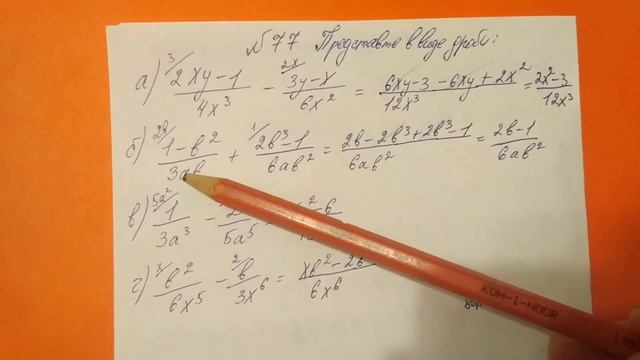 № 77 Представте в виде дроби:
а) ³⁄ (2xy-1)/(4x³) - ²ˣ⁄ (3y-x)/(6x²) = (6xy-3-6xy+2x²)/(12x³) = (2x²-3)/(12x³)
б) ²ᵇ⁄ (1-b²)/(3ab) + ¹⁄ (2b³-1)/(6ab²) = (2b-2b³+2b³-1)/(6ab²) = (2b-1)/(6ab²)
в) ⁵ᵃ²⁄ 1/(3a³) - 2/(5a⁵)
г) ˣ⁄ b²/(6x⁵) - ²⁄ b/(3x⁶) = (xb²-2b)/(6x⁶)
KOH-I-NOOR